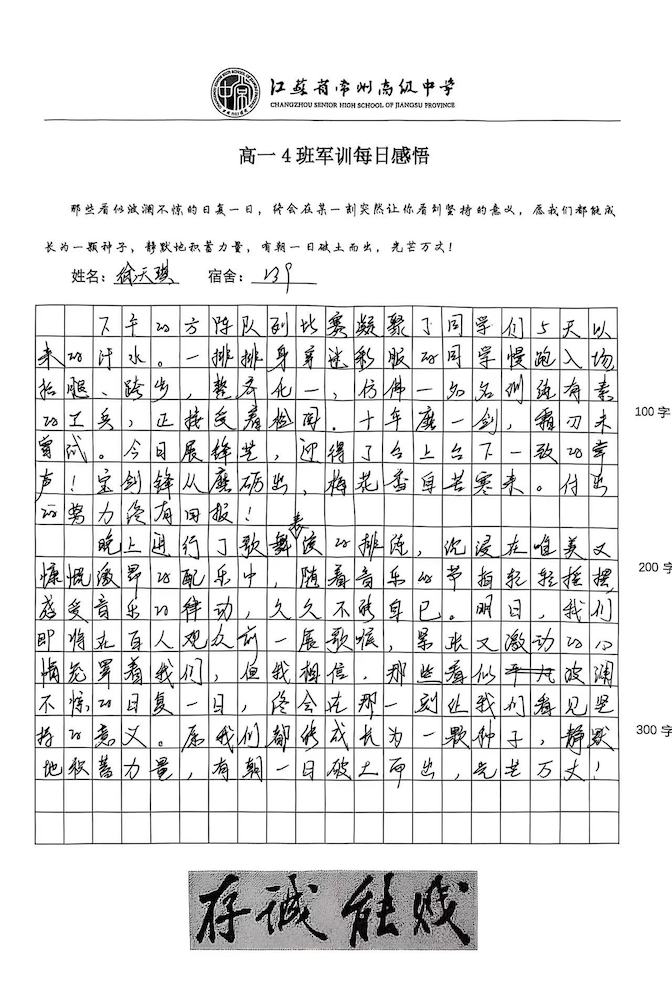 江苏省常州高级中学
CHANGZHOU SENIOR HIGH SCHOOL OF JIANGSU PROVINCE
高一4班军训每日感悟
那些看似波澜不惊的日复一日，终会在某一刻突然让你看到坚持的意义，愿我们都能成
长为一颗种子，静默地积蓄力量，有朝一日破土而出，光芒万丈！
姓名：徐天琪 宿舍：239
下午的方阵队列比赛凝聚了同学们5天以
来的汗水。一排排身穿迷彩服的同学慢跑入场，
抬腿、跨步，整齐化一，仿佛一名名训练有素
的工兵，正接受着检阅。十年磨一剑，霜刃未
曾试。今日展锋芒，迎得了台上台下一致的掌
声！宝剑锋从磨砺出，梅花香自苦寒来。付出
的努力终有回报！
晚上进行了歌舞表演的排练，沉浸在唯美又
慷慨激昂的配乐中，随着音乐的节拍轻轻摇摆，
感受音乐的律动，久久不能自已。明日，我们
即将在百人观众前一展歌喉，紧张又激动的心
情充罩着我们，但我相信，那些看似波澜
不惊的日复一日，终会在那一刻让我们看见坚
持的意义。愿我们都能成长为一颗种子，静默
地积蓄力量，有朝一日破土而出，光芒万丈！
100字
200字
300字
存诚能贱